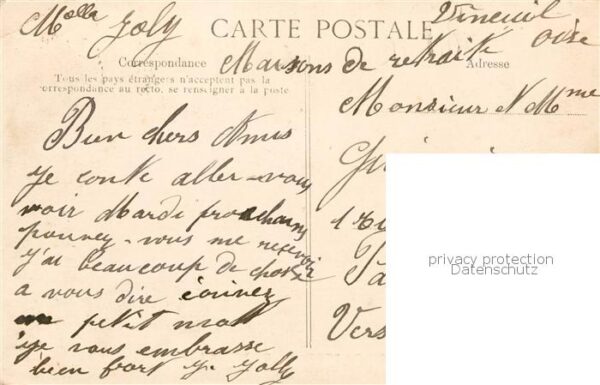 Melle Joly
CARTE POSTALE
Vineuil
Oise
Correspondance
Maisons de retraite
Adresse
Tous les pays étrangers n'acceptent pas la
correspondance au recto, se renseigner à la poste
Monsieur
Mme
Bien chers Amis
je conte aller-vous
voir Mardi prochains
pouvez-vous me recevoir
j'ai beaucoup de chose
a vous dire écrivez
petit mott
je vous embrasse
bien fort Y. Jolly
Vers
privacy protection
Datenschutz